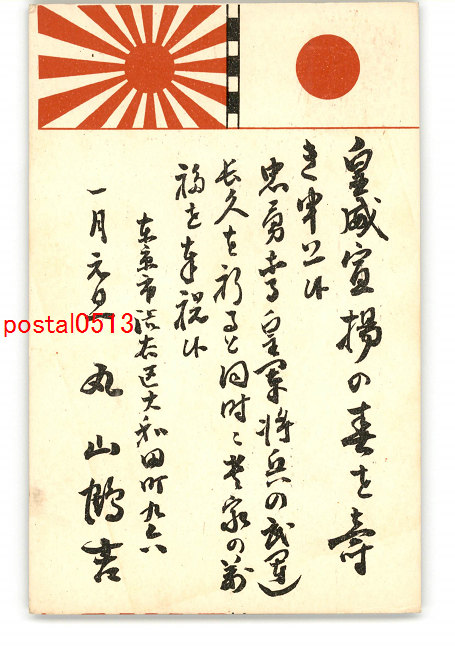 皇威宣揚の春を壽
き申上候
忠勇なる皇軍将兵の武運
長久を祈ると同時に貴家の萬
福を奉祝候
東京市渋谷区大和田町九六
一月元旦 丸山鶴吉
postal0513